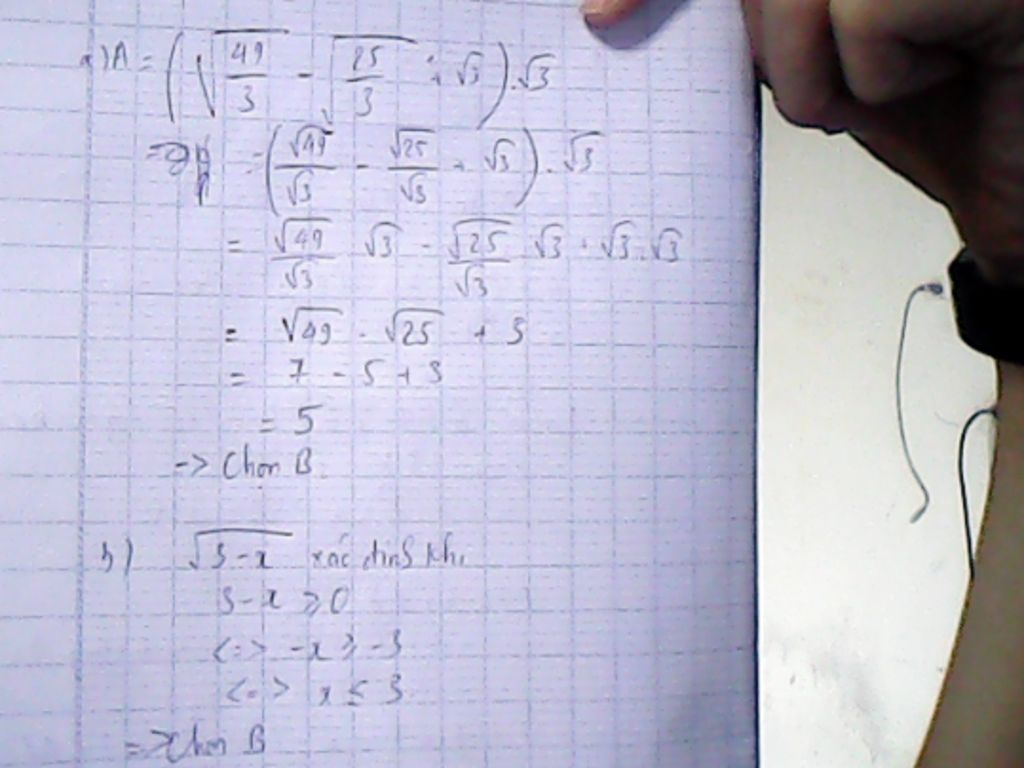 a) A = (√(49/3) - √(25/3) + √3).√3
= (√49/√3 - √25/√3 + √3).√3
= √49/√3 √3 - √25/√3 √3 + √3.√3
= √49 - √25 + 3
= 7 - 5 + 3
= 5
-> Chọn B.
b) √3-x xác định khi
3-x ≥ 0
<=> -x ≥ -3
<=> x ≤ 3
=> Chọn B